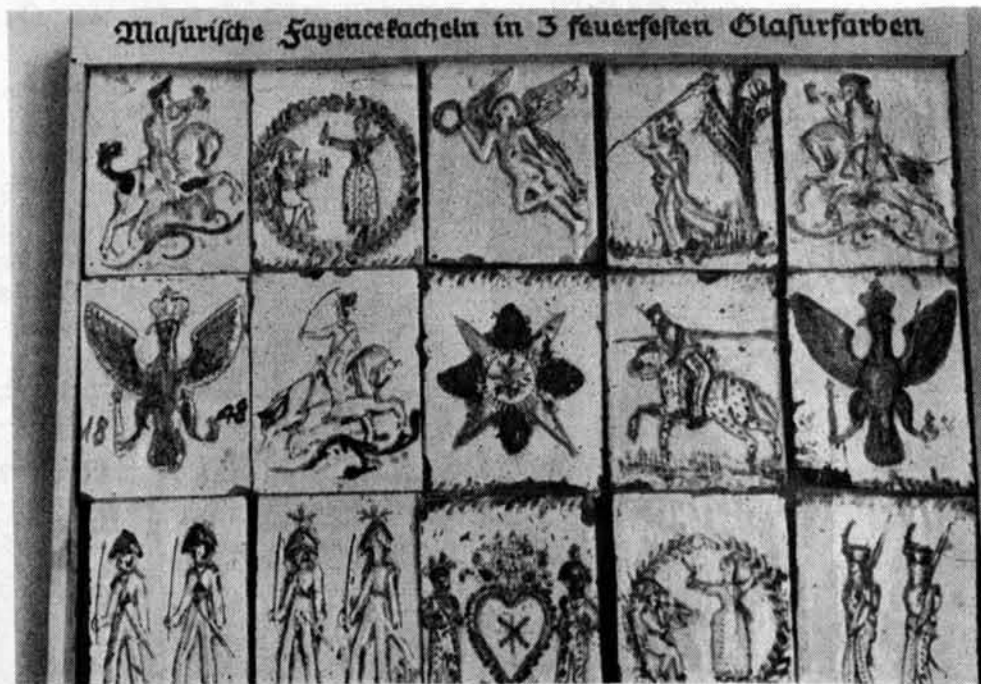 Masurische Fayencekacheln in 3 feuerfesten Glasurfarben
18 48